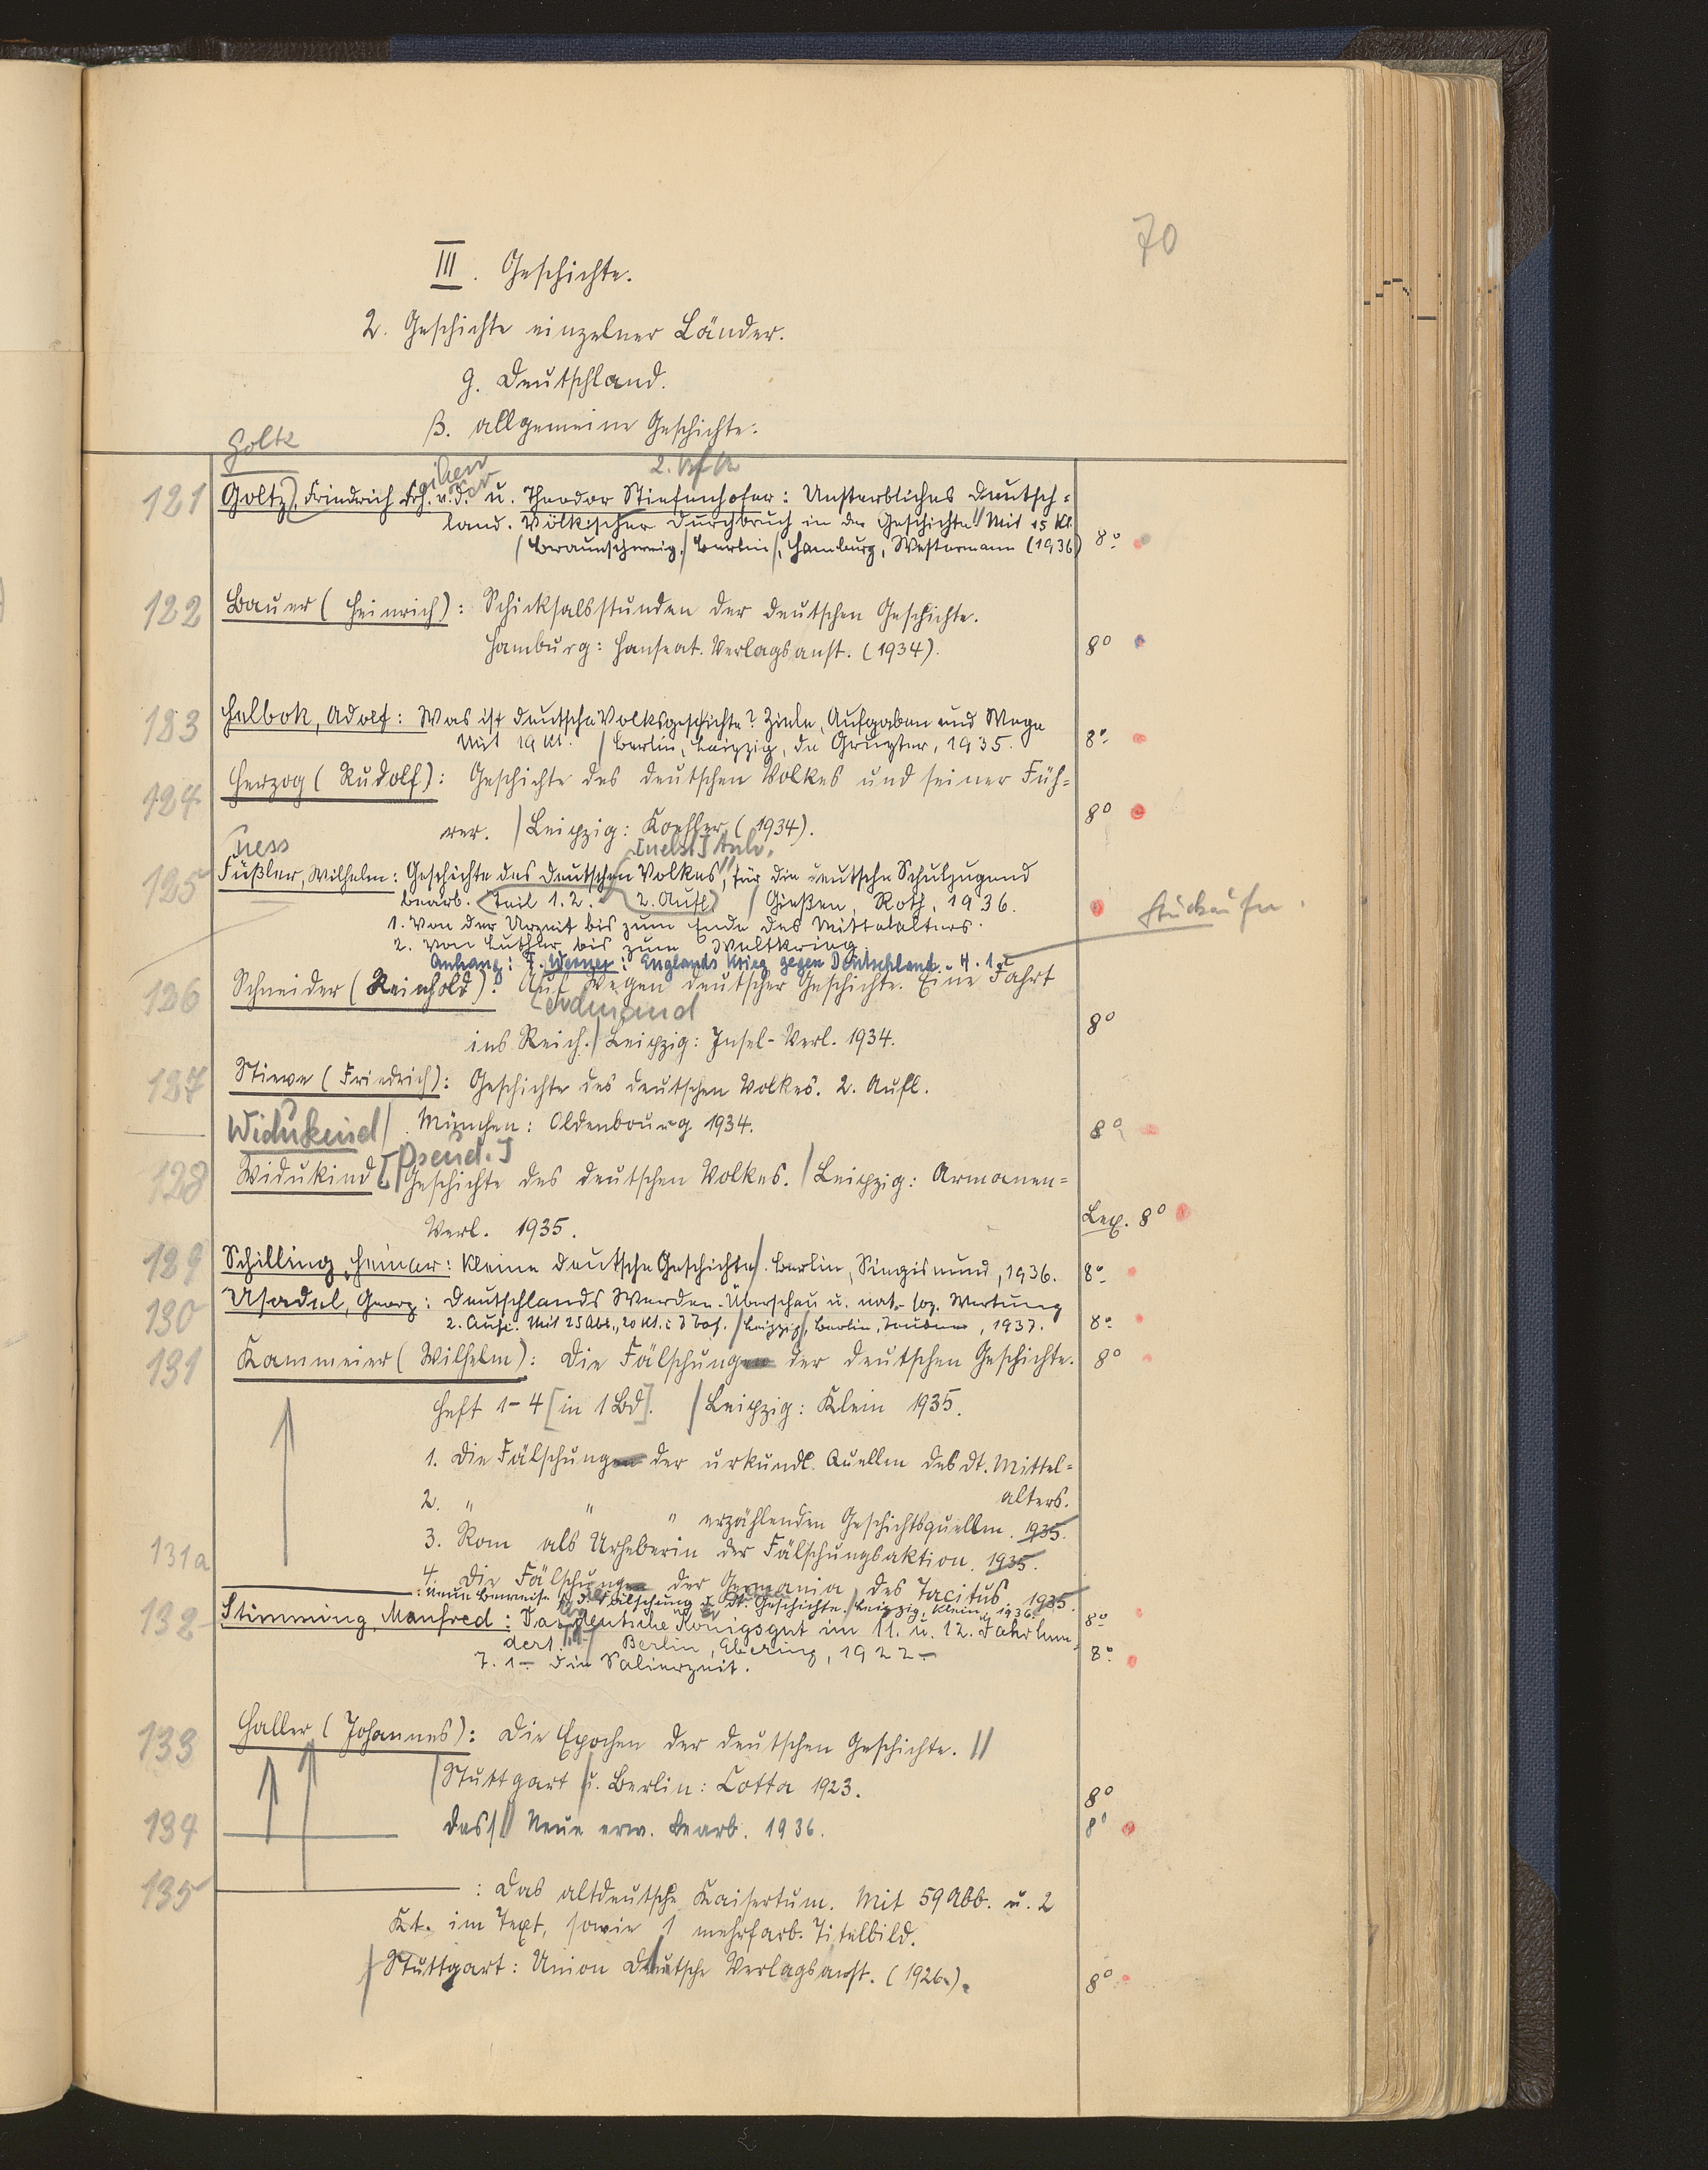 70
III. Geschichte.
2. Geschichte einzelner Länder.
g. Deutschland.
β. Allgemeine Geschichte.
Goltz
121 Goltz, Friedrich Frh. v. d. u. Theodor Stiefenhofer: Unsterbliches Deutsch=
land. Völkischer Durchbruch in der Geschichte // Mit 15 Kt.
/ Braunschweig, / Berlin /, Hamburg, Westermann (1936) 8°
122 Bauer (Heinrich): Schicksalsstunden der deutschen Geschichte.
Hamburg: Hanseat. Verlagsanst. (1934). 8°
123 Helbok, Adolf: Was ist deutsche Volksgeschichte? Ziele, Aufgaben und Wege
Mit 19 Kt. / Berlin, Leipzig, de Gruyter, 1935. 8°
124 Herzog (Rudolf): Geschichte des deutschen Volkes und seiner Füh=
rer. / Leipzig: Koehler (1934). 8°
ness [nebst] Anh.
125 Füßler, Wilhelm: Geschichte des deutschen Volkes, für die deutsche Schuljugend
bearb. Teil 1.2. 2. Aufl / Gießen, Roth, 1936.
1. Von der Urzeit bis zum Ende des Mittelalters.
2. Von Luther bis zum Weltkrieg.
Anhang: F. Werner: Englands Krieg gegen Deutschland. H. 1.
126 Schneider (Reinhold): Auf Wegen deutscher Geschichte. Eine Fahrt
Ferdinand
ins Reich. / Leipzig: Insel-Verl. 1934. 8°
127 Stieve (Friedrich): Geschichte des deutschen Volkes. 2. Aufl.
München: Oldenbourg 1934. 8°
Widukind
[Pseud.]
128 Widukind / Geschichte des deutschen Volkes. / Leipzig: Armanen=
Verl. 1935. Lex. 8°
129 Schilling, Heinar: Kleine deutsche Geschichte /. Berlin, Singismund, 1936. 8°
130 Usadel, Georg: Deutschlands Werden. Überschau u. nat.-soz. Wertung
2. Aufl. Mit 25 Abb., 20 Kt. / Leipzig /, Berlin, Teubner, 1937. 8°
131 Kammeier (Wilhelm): Die Fälschung der deutschen Geschichte. 8°
Heft 1-4 [in 1 Bd]. / Leipzig: Klein 1935.
1. Die Fälschung der urkundl. Quellen des dt. Mittel=
alters.
2. " " " erzählenden Geschichtsquellen. 1935.
3. Rom als Urheberin der Fälschungsaktion. 1935.
4. Die Fälschung der Germania des Tacitus. 1935.
131a : Neue Beweise f. d. Fälschung d. dt. Geschichte. / Leipzig, Klein, 1936. 8°
132 Stimming, Manfred: Das deutsche Königsgut im 11. u. 12. Jahrhun=
dert. / Berlin, Ebering, 1922- 8°
T. 1- Die Salierzeit.
133 Haller (Johannes): Die Epochen der deutschen Geschichte. //
/ Stuttgart / u. Berlin: Cotta 1923. 8°
134 Dass // Neue erw. Bearb. 1936. 8°
135 : Das altdeutsche Kaisertum. Mit 59 Abb. u. 2
Kt. im Text, sowie 1 mehrfarb. Titelbild.
/ Stuttgart: Union Deutsche Verlagsanst. (1926.). 8°